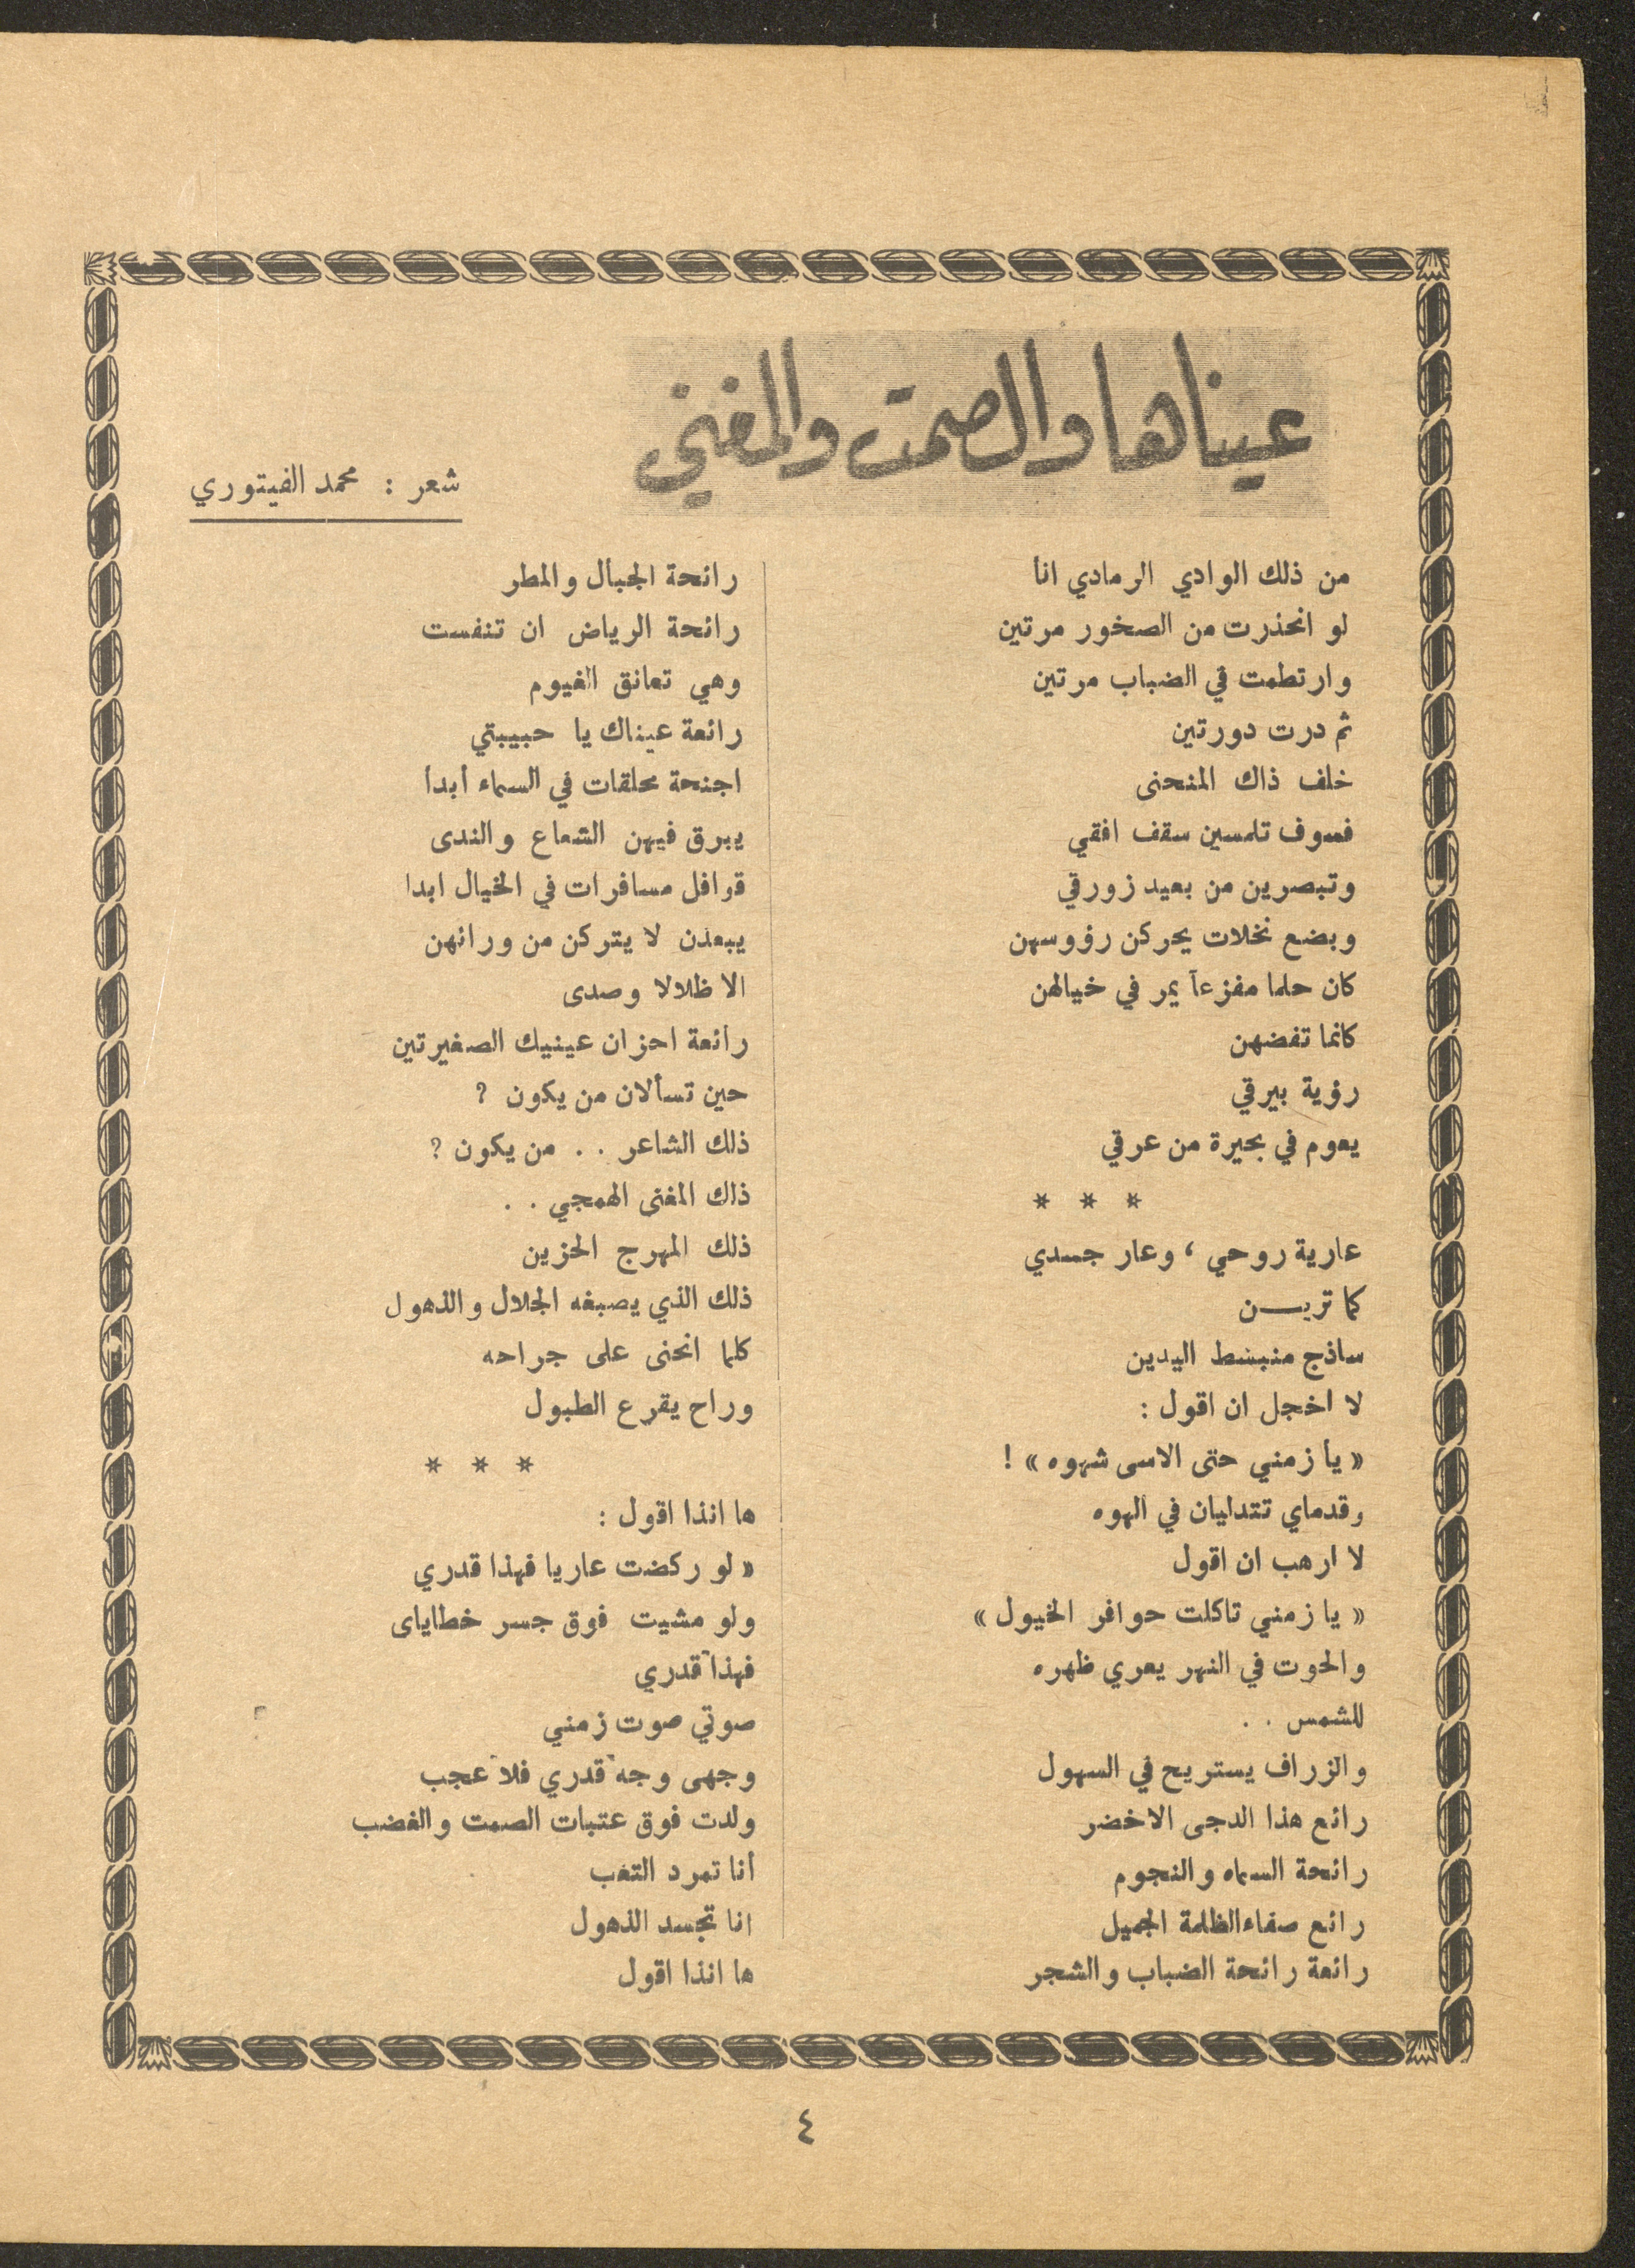 عيناها والصمت والمغني
شعر : محمد الفيتوري
من ذلك الوادي الرمادي انا
لو انحذرت من الصخور مرتين
وارتطمت في الضباب مرتين
ثم درت دورتين
خلف ذاك المنحنى
فسوف تلمسين سقف افقي
وتبصرين من بعيد زورقي
وبضع نخلات يحركن رؤوسهن
كان حلما مفزعاً يمر في خيالهن
كانما تفضهن
رؤية بيرقي
يعوم في بحيرة من عرقي
* * *
عارية روحي ، وعار جسدي
كما تريــن
ساذج منبسط اليدين
لا اخجل ان اقول :
« يا زمني حتى الاسى شهوه » !
وقدماي تتدليان في الهوه
لا ارهب ان اقول
« يا زمني تاكلت حوافر الخيول »
والحوت في النهر يعري ظهره
للشمس . .
والزراف يستريح في السهول
رائع هذا الدجى الاخضر
رائحة السماء والنجوم
رائع صفاء الظلمة الجميل
رائعة رائحة الضباب والشجر
رائحة الجبال والمطر
رائحة الرياض ان تنفست
وهي تعانق الغيوم
رائعة عيناك يا حبيبتي
اجنحة محلقات في السماء أبدا
يبرق فيهن الشعاع والندى
قوافل مسافرات في الخيال ابدا
يبعدن لا يتركن من ورائهن
الا ظلالا وصدى
رائعة احزان عينيك الصغيرتين
حين تسألان من يكون ?
ذلك الشاعر . . من يكون ?
ذاك المغنى الهمجي . .
ذلك المهرج الحزين
ذلك الذي يصبغه الجلال والذهول
كلما انحنى على جراحه
وراح يقرع الطبول
* * *
ها انذا اقول :
« لو ركضت عاريا فهذا قدري
ولو مشيت فوق جسر خطاياى
فهذا قدري
صوتي صوت زمني
وجهى وجه قدري فلا عجب
ولدت فوق عتبات الصمت والغضب
أنا تمرد التعب
انا تجسد الذهول
ها انذا اقول
٤